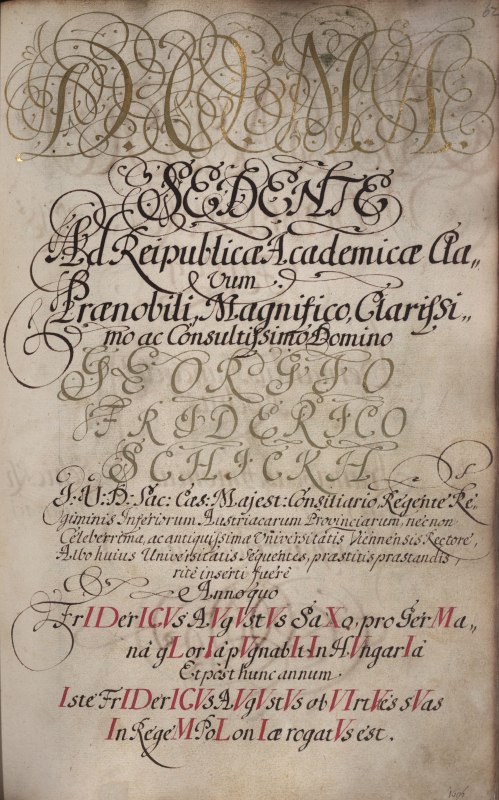 D. O. M. A.
SEDENTE
Ad Reipublicæ Academicæ Cla„
vum
Prænobili, Magnifico, Clarissi„
mo ac Consultissimo Domino
GEORGIO
FRIDERICO
SCHICKH
I. U. D. Sac: Cæs: Majest: Consiliario, Regente Re„
giminis Inferiorum Austriacarum Provinciarum, nec non
Celeberrima, ac antiquissima Universitatis Viennensis Rectore,
Albo huius Universitatis sequentes, præstitis præstandis,
ritè inserti fuêre
Anno quo
FrIDerICVs AVgVstVs SaXo, pro GerMa„
nâ gLorIâ pVgnabIt In HVngarIâ
Et post hunc annum
Iste FrIDerICVs AVgVstVs ob VIrtVes sVas
In Rege M PoLonIæ rogatVs est.